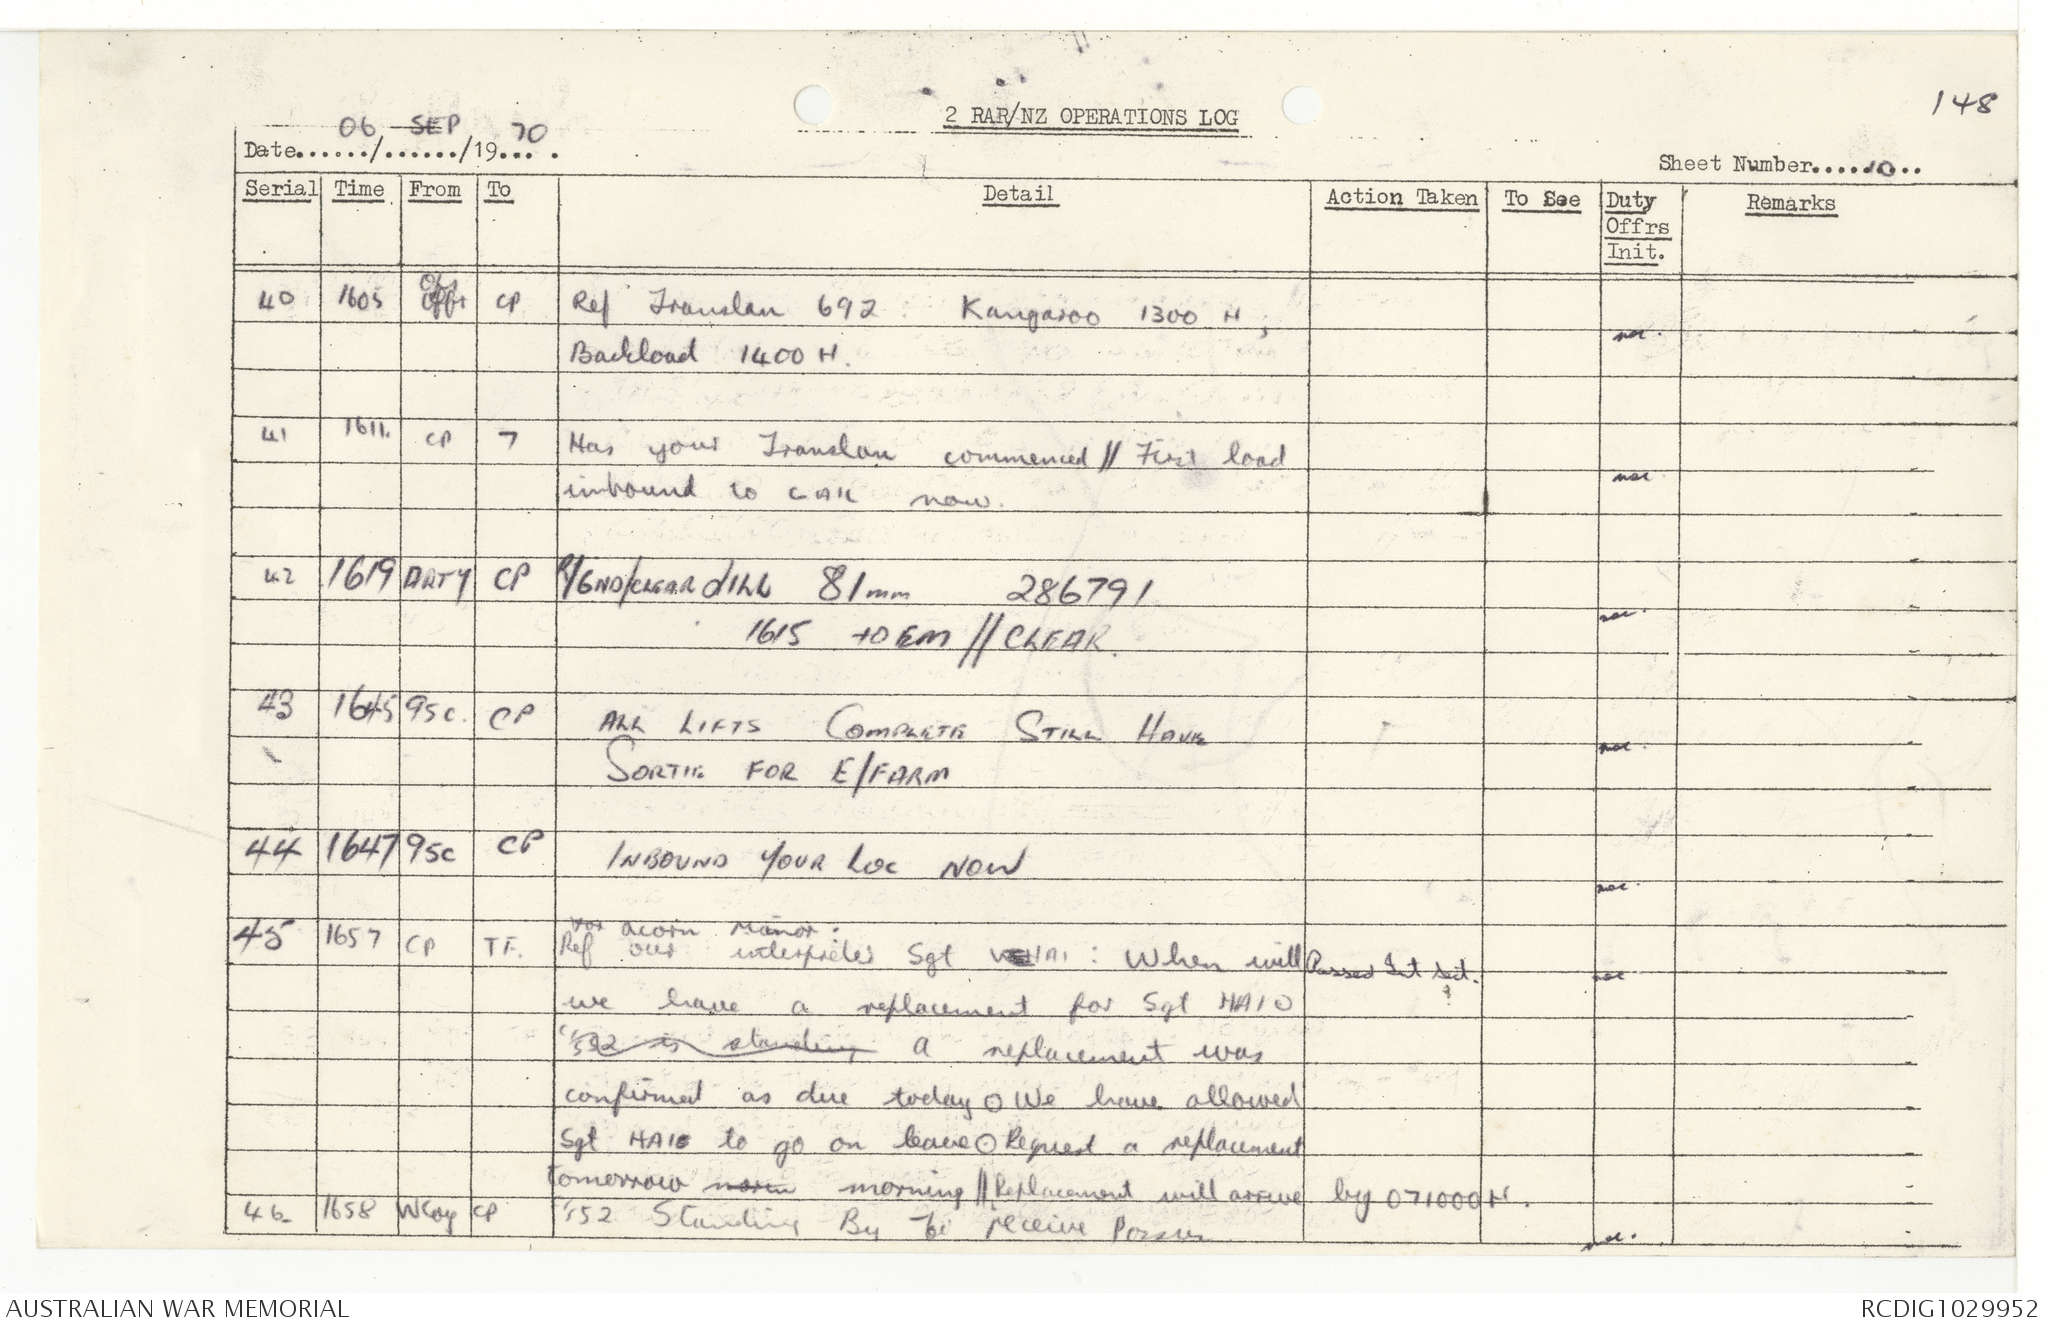 148
2 RAR/NZ OPERATIONS LOG
Date 06/SEP/1970
Sheet Number 10
Serial Time From To Detail Action Taken To See Duty Offrs Init. Remarks
40 1605 CP Ref Translan 692 : Kangaroo 1300 H ;
Backload 1400 H.
41 1611 CP 7 Has your Translan commenced // First load
inbound to now.
42 1619 DARTY CP /GND/CLEAR d/ILL 81mm 286791
1615 +0 // CLEAR.
43 1645 95c. CP ALL LIFTS COMPLETE STILL HAVE
SORTIE FOR E/FARM
44 1647 95c CP INBOUND YOUR LOC NOW
for acorn minor:
45 1657 CP TF. Ref our interpreter Sgt HAI : When will Passed Int Sect.
we have a replacement for Sgt HAI O
'552 is standing A replacement was
confirmed as due today O We have allowed
Sgt HAI to go on leave O Request a replacement
tomorrow morin morning // Replacement will arrive by 071000H.
46 1658 WCoy CP '552 Standing By to receive Possum
AUSTRALIAN WAR MEMORIAL
RCDIG1029952